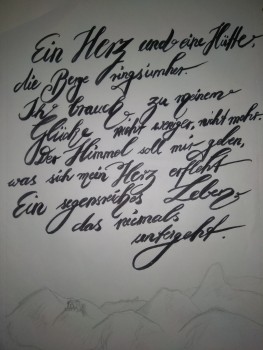 Ein Herz und eine Hütte,
die Berge ringsumher.
Ich brauch zu meinem
Glücke nicht weniger, nicht mehr.
Der Himmel soll mir geben,
was sich mein Herz erfleht
Ein segensreiches Leben,
das niemals
untergeht.